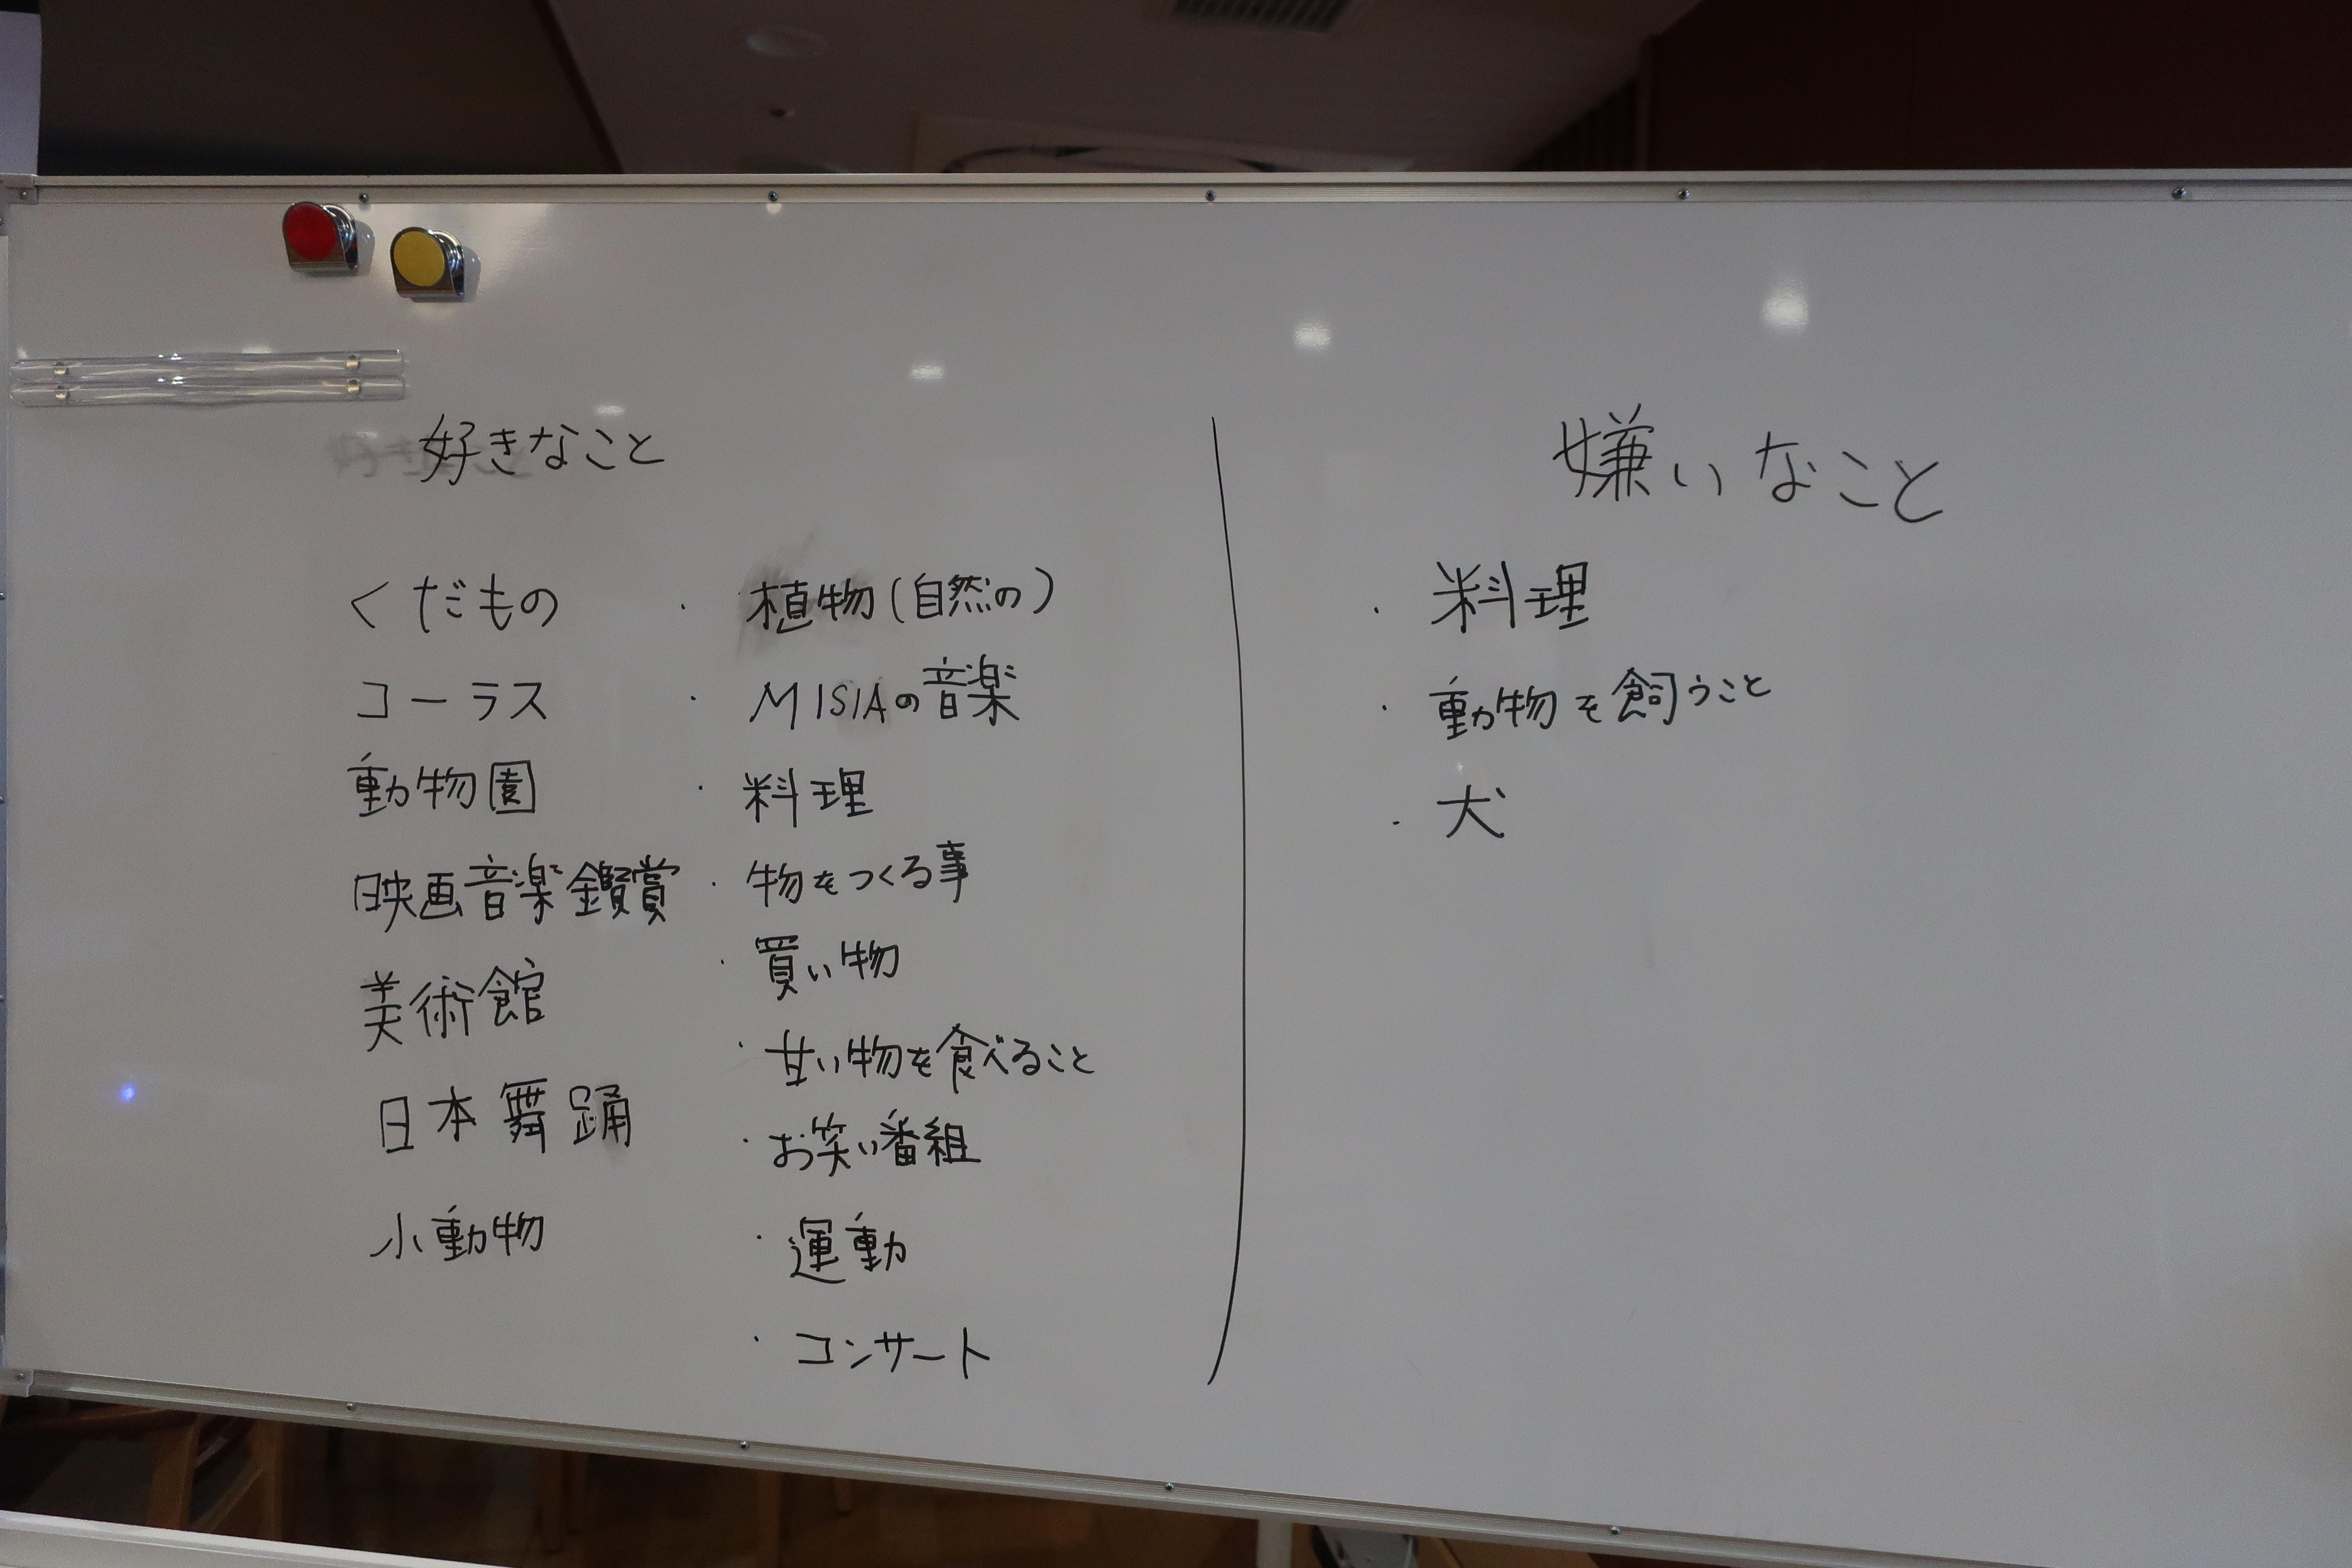 好きなこと
くだもの
コーラス
動物園
映画音楽鑑賞
美術館
日本舞踊
小動物
・植物(自然の)
・MISIAの音楽
・料理
・物をつくる事
・買い物
・甘い物を食べること
・お笑い番組
・運動
・コンサート
嫌いなこと
・料理
・動物を飼うこと
・犬